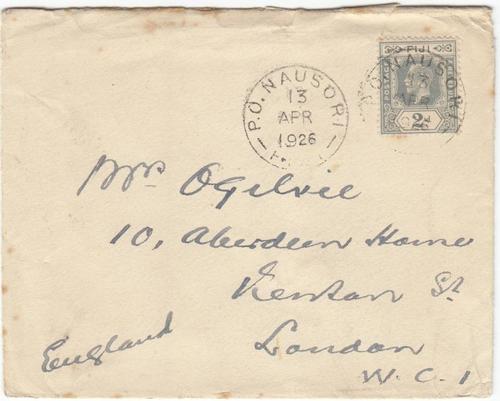 P.O. NAUSORI
13
APR
1926
FIJI
POSTAGE
2d
P.O. NAUSORI
13
APR
Mrs Ogilvie
10, Aberdeen House
Kenton St
London
England
W.C.1